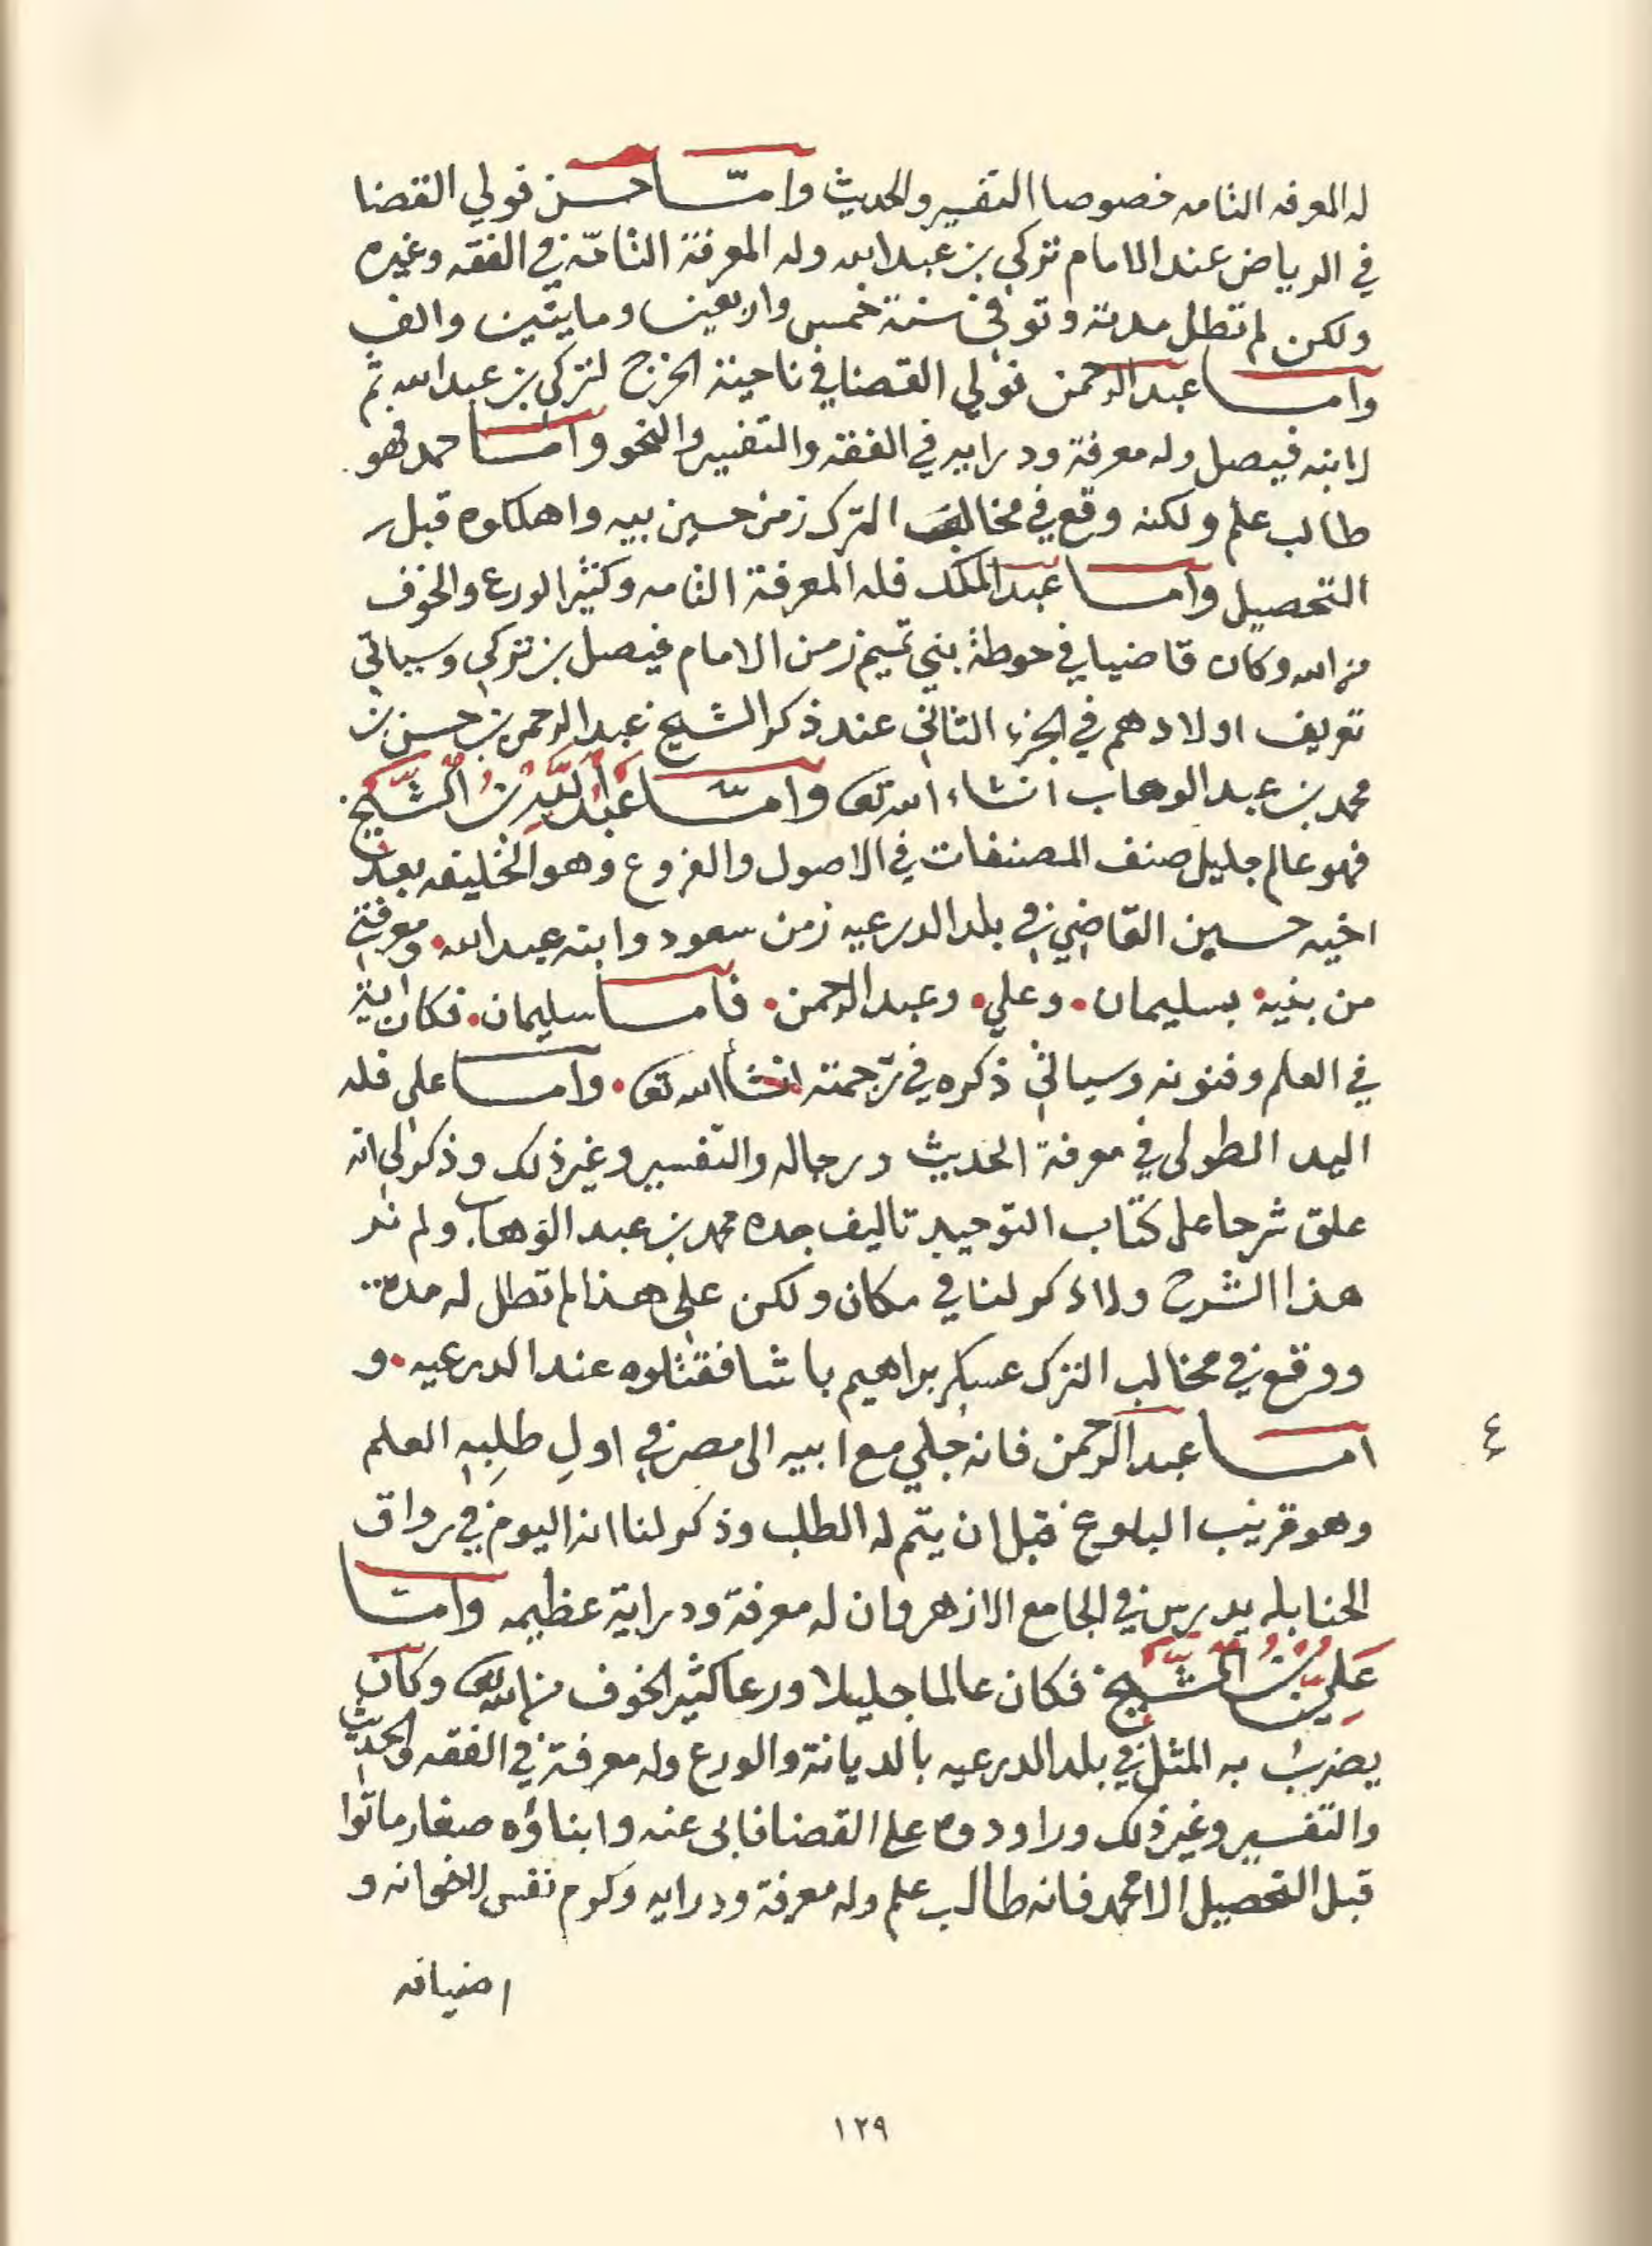 له المعرفه التامه خصوصا التفسير والحديث وامّا حسن فولي القضا
في الرياض عند الامام تركي بن عبد الله وله المعرفة التامّه في الفقه وغيره
ولكن لم تطل مدته وتوفي سنة خمس واربعين ومايتين والف
واما عبد الرحمن فولي القضا في ناحية الخرج لتركي بن عبد الله ثم
لابنه فيصل وله معرفة ودرايه في الفقه والتفسير والنحو وامّا حمد فهو
طالب علم ولكنه وقع في مخالب الترك زمن حسين بيه واهلكوه قبل
التحصيل واما عبد الملك فله المعرفة التامه وكثير الورع والخوف
من الله وكان قاضيا في حوطة بني تميم زمن الامام فيصل بن تركي وسياتي
تعريف اولادهم في الجزء الثاني عند ذكر الشيخ عبد الرحمن بن حسن بن
محمد بن عبد الوهاب انشاء الله تعالى وامّا عَبْدُ اللَّهِ بْنُ الشَّيْخ
فهو عالم جليل صنف المصنفات في الاصول والفروع وهو الخليفه بعد
اخيه حسين القاضي في بلد الدرعيه زمن سعود وابنه عبد الله ومعرفتي
من بنيه بسليمان وعلي وعبد الرحمن فاما سليمان فكان اية
في العلم وفنونه وسياتي ذكره في ترجمته انشأ الله تعالى واما علي فله
اليد الطولى في معرفة الحديث ورجاله والتفسير وغير ذلك وذكر لي انه
علق شرحا على كتاب التوحيد تاليف جده محمد بن عبد الوهاب ولم نر
هذا الشرح ولا ذكر لنا في مكان ولكن على هذا لم تطل له مدة
ووقع في مخالب الترك عسكر براهيم باشا فقتلوه عند الدرعيه و
اما عبد الرحمن فانه جلي مع ابيه الى مصر في اول طلبه العلم
٤
وهو قريب البلوغ قبل ان يتم له الطلب وذكر لنا انه اليوم في رواق
الحنابله يدرس في الجامع الازهر وان له معرفة ودراية عظيمه وامّا
عَلِيُّ بْنُ الشَّيْخ فكان عالما جليلا ورعا كثير الخوف من الله تعالى وكان
يضرب به المثل في بلد الدرعيه بالديانة والورع وله معرفة في الفقه والحديث
والتفسير وغير ذلك وراودوه على القضا فابى عنه وابناؤه صغار ماتوا
قبل التحصيل الا محمد فانه طالب علم وله معرفة ودرايه وكرم نفس لاخوانه و
اضيافه
١٢٩